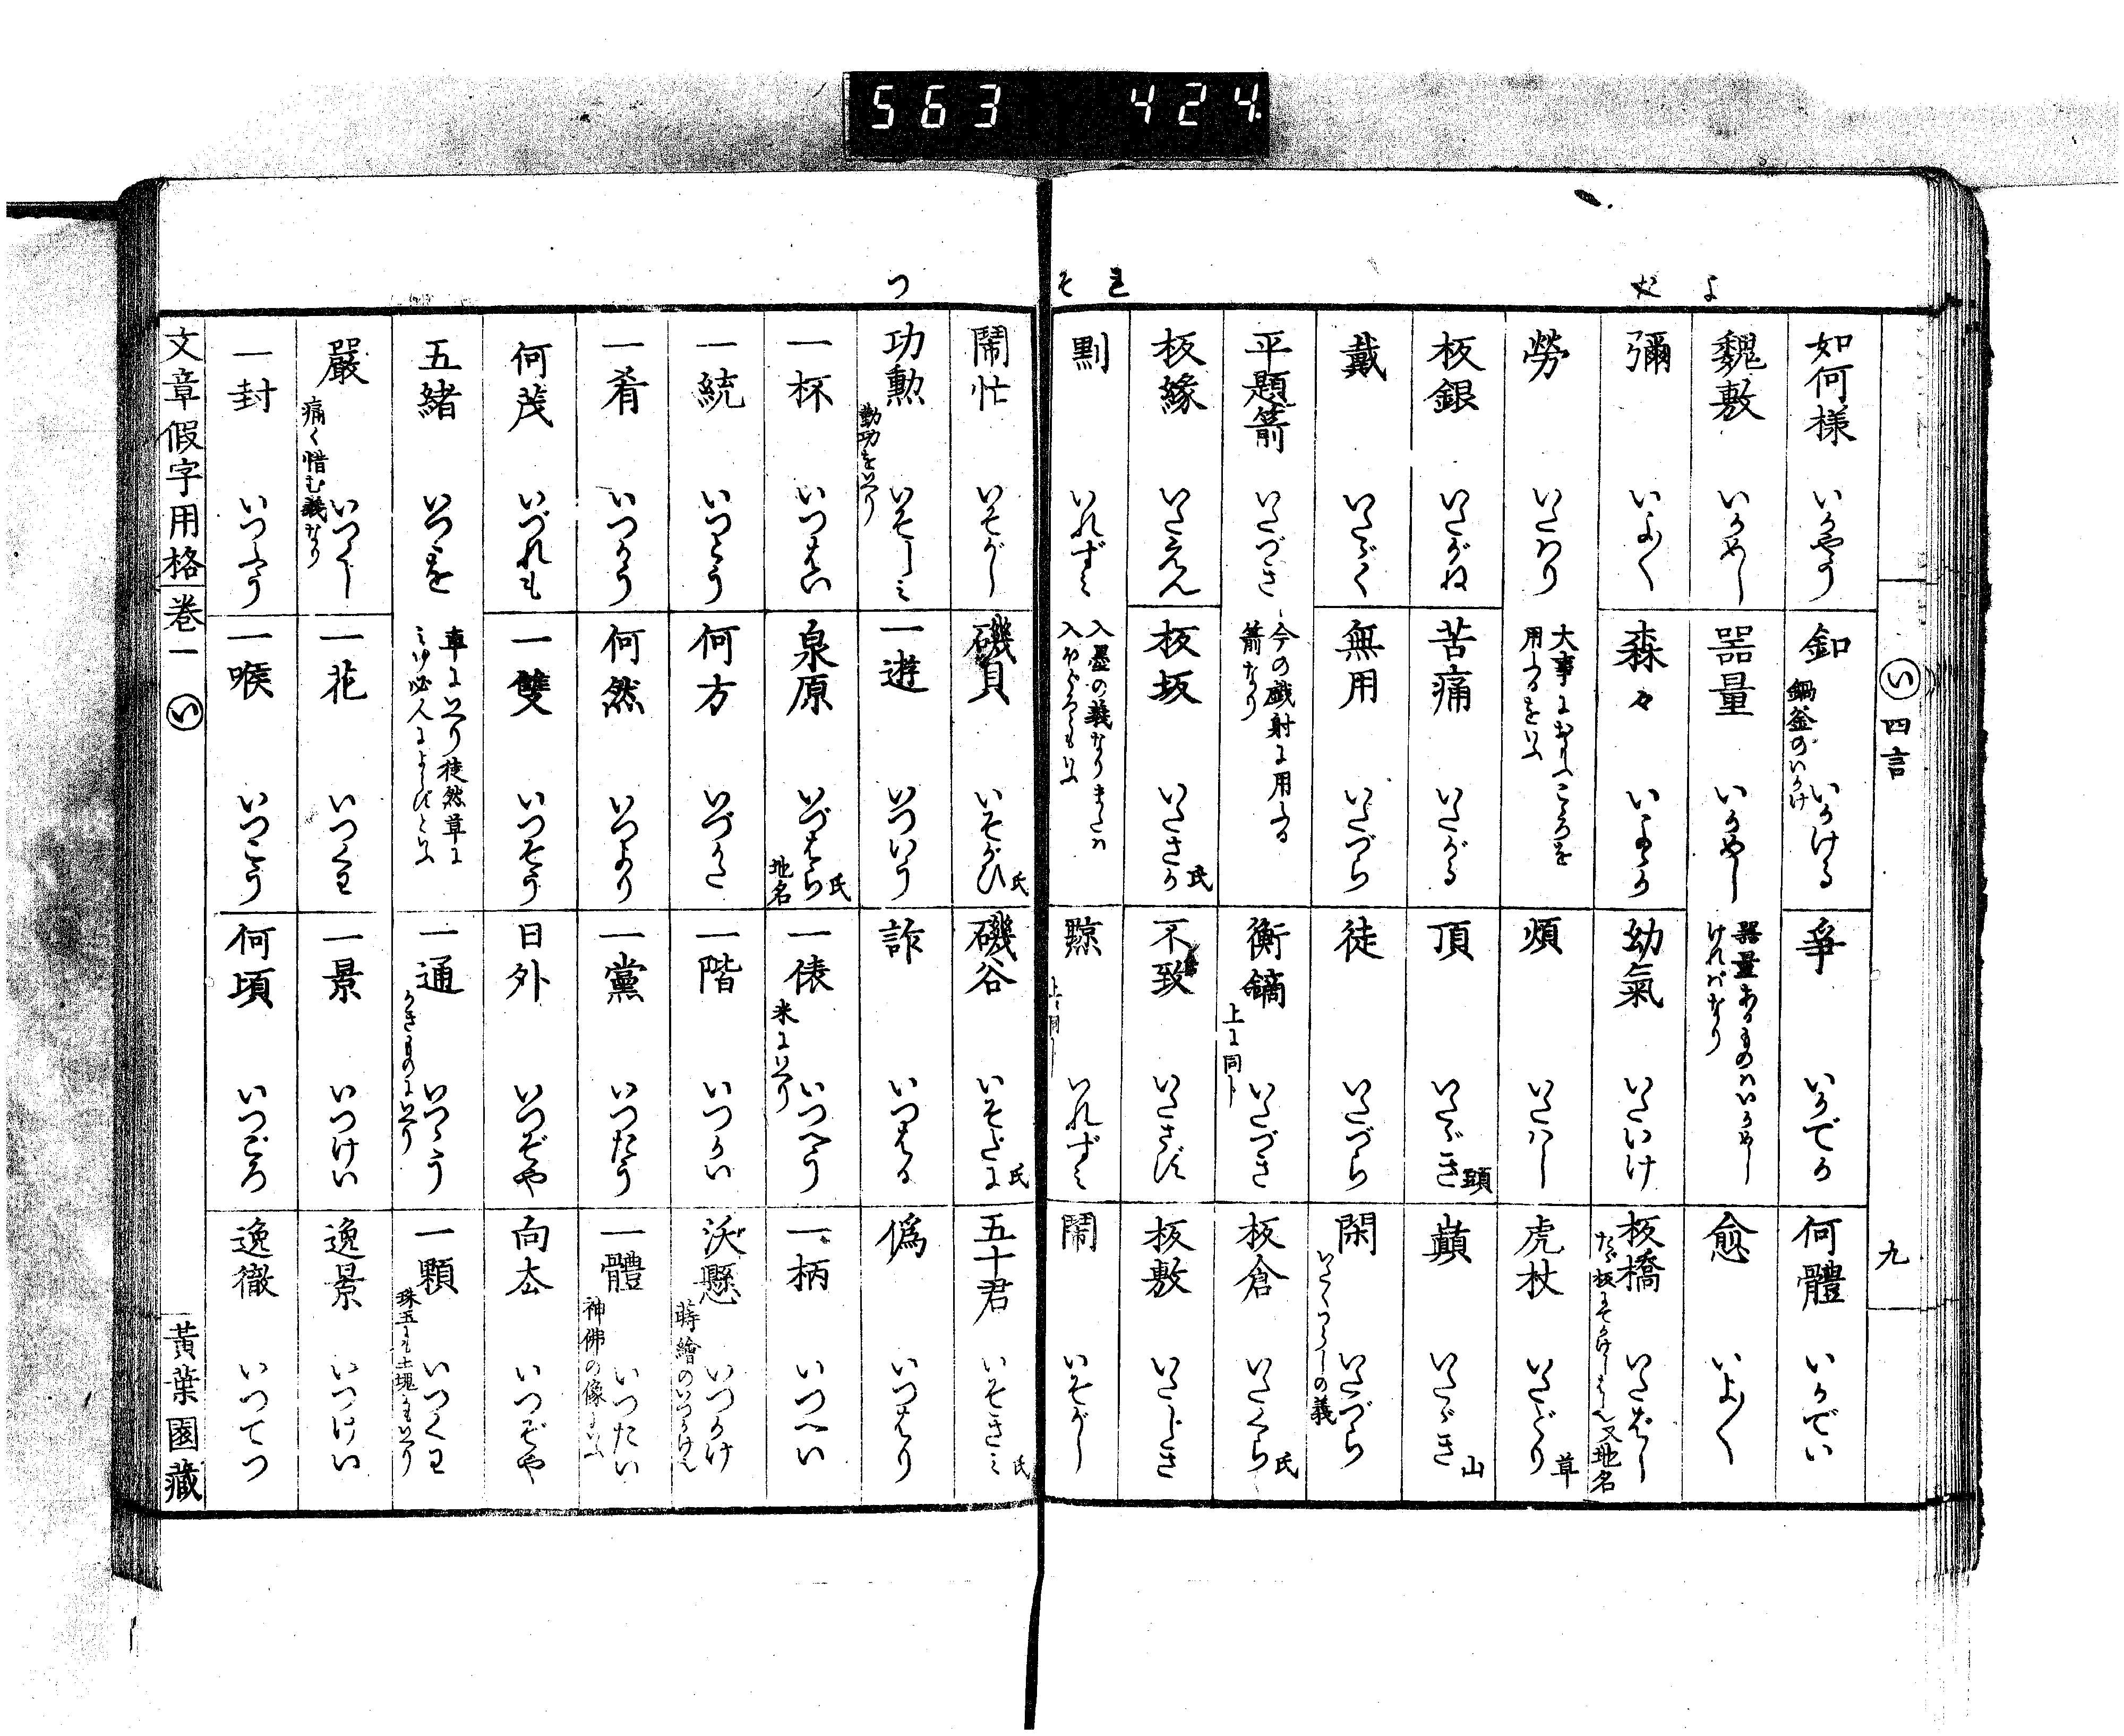 563 424.
よ
た
れ
そ
つ
い 四言
九
如何様 いかやう
釦 いかける 鍋釜のいかけ
爭 いかでか
何體 いかでい
魏敷 いかめし
器量 いかめし 器量あるものハいかめしけれバなり
愈 いよ〱
彌 いよ〱
森々 いよよか
幼氣 いたいけ
板橋 いたばし
勞 いたわり 大事におもふこゝろを用ふるをいふ
煩 いたハし
虎杖 いたどり 草
板銀 いたがね
苦痛 いたがる
頂 いたゞき 頭
巓 いたゞき 山
戴 いたゞく
無用 いたづら
徒 いたづら
閑 いたづら
平題箭 いたづき 今の戯射に用ふる箭なり
衡鏑 いたづき 上に同し
板倉 いたくら 氏
板縁 いたえん
板坂 いたさか 氏
不致 いたさず
板敷 いたじき
いれずミ 入墨の義なりまたハ入ほくろともいふ
黥 いれずミ 上に同し
鬧 いそがし
鬧忙 いそがし
磯貝 いそがひ 氏
磯谷 いそだに 氏
五十君 いそきミ 氏
功勲 いそしミ 勤功をいへり
一遊 いついう
詐 いつはる
僞 いつはり
一杯 いつはい
泉原 いづはら 氏 地名
一俵 いつへう 米にいへり
一柄 いつへい
一統 いつとう
何方 いづかた
一階 いつかい
沃懸 いつかけ 蒔繪のいつかけ也
一肴 いつかう
何然 いつより
一黨 いつたう
一體 いつたい 神佛の像にいふ
何茂 いづれも
一雙 いつそう
日外 いつぞや
向厺 いつぞや
五緒 いつを 車にいへり徒然草にミゆ必人によらずといふ
一通 いつゝう かきものにいへり
一顆 いつくわ 珠玉にも土塊にもいへり
嚴 いつくし 痛く惜む義なり
一花 いつくわ
一景 いつけい
逸景 いつけい
一封 いつふう
一喉 いつこう
何頃 いつごろ
逸徹 いつてつ
文章假字用格 巻一 い 黄葉園藏